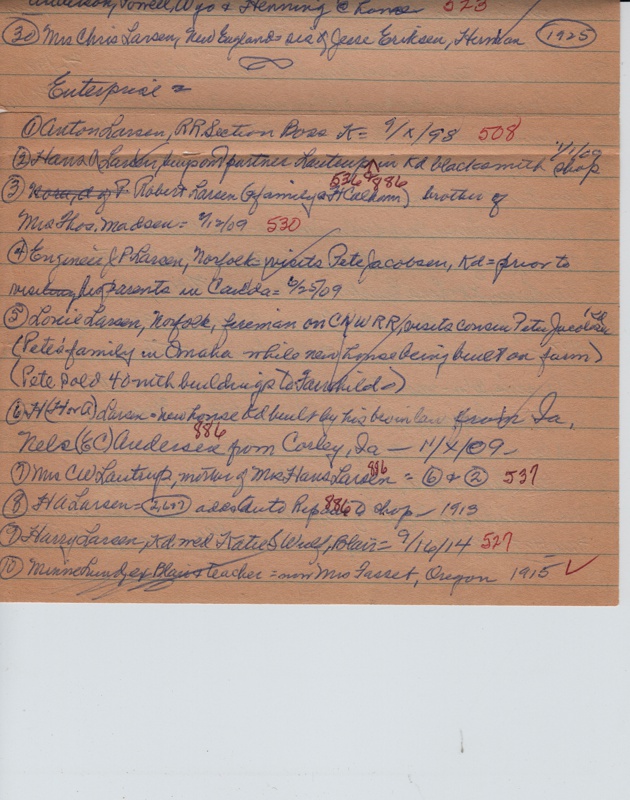 Anderson, Powell, Wyo & Henning @ home 523
(30) Mrs Chris Larsen, New England = sis of Jesse Eriksen, Herman (1925)
Enterprise =
(1) Anton Larsen, RR Section Boss K = 9/X/98 508
(2) Hans A Larsen, partner Lautrup in Kd blacksmith shop 1/1/09
536 & 886
(3) P. Robert Larsen (& family @ H Calhoun) brother of
Mrs Thos. Madsen = 9/12/09 530
(4) Engineer J P Larsen, Norfolk = visits Pete Jacobsen, Kd = prior to
visiting his parents in Canada = 6/25/09
(5) Louie Larsen, Norfolk, fireman on C NW RR, visits cousin Pete Jacobsen
(Pete's family in Omaha while new house being built on farm)
(Pete sold 40 with buildings to Fairchilds)
(6) H (H or A) Larsen = new house Kd built by his bro in law from Ia,
Nels (EC) Andersen from Corley, Ia — 11/X/09 -
886
(7) Mrs CW Lautrup, mother of Mrs Hans Larsen = (6) & (2) 537
886
(8) H A Larsen = (2,607) adds Auto Repair to shop - 1913
886
(9) Harry Larsen, Kd wed Katie S Wulf, Blair = 9/16/14 527
(10) Minnie Lund, ex Blair teacher = now Mrs Fasset, Oregon 1915 ✓